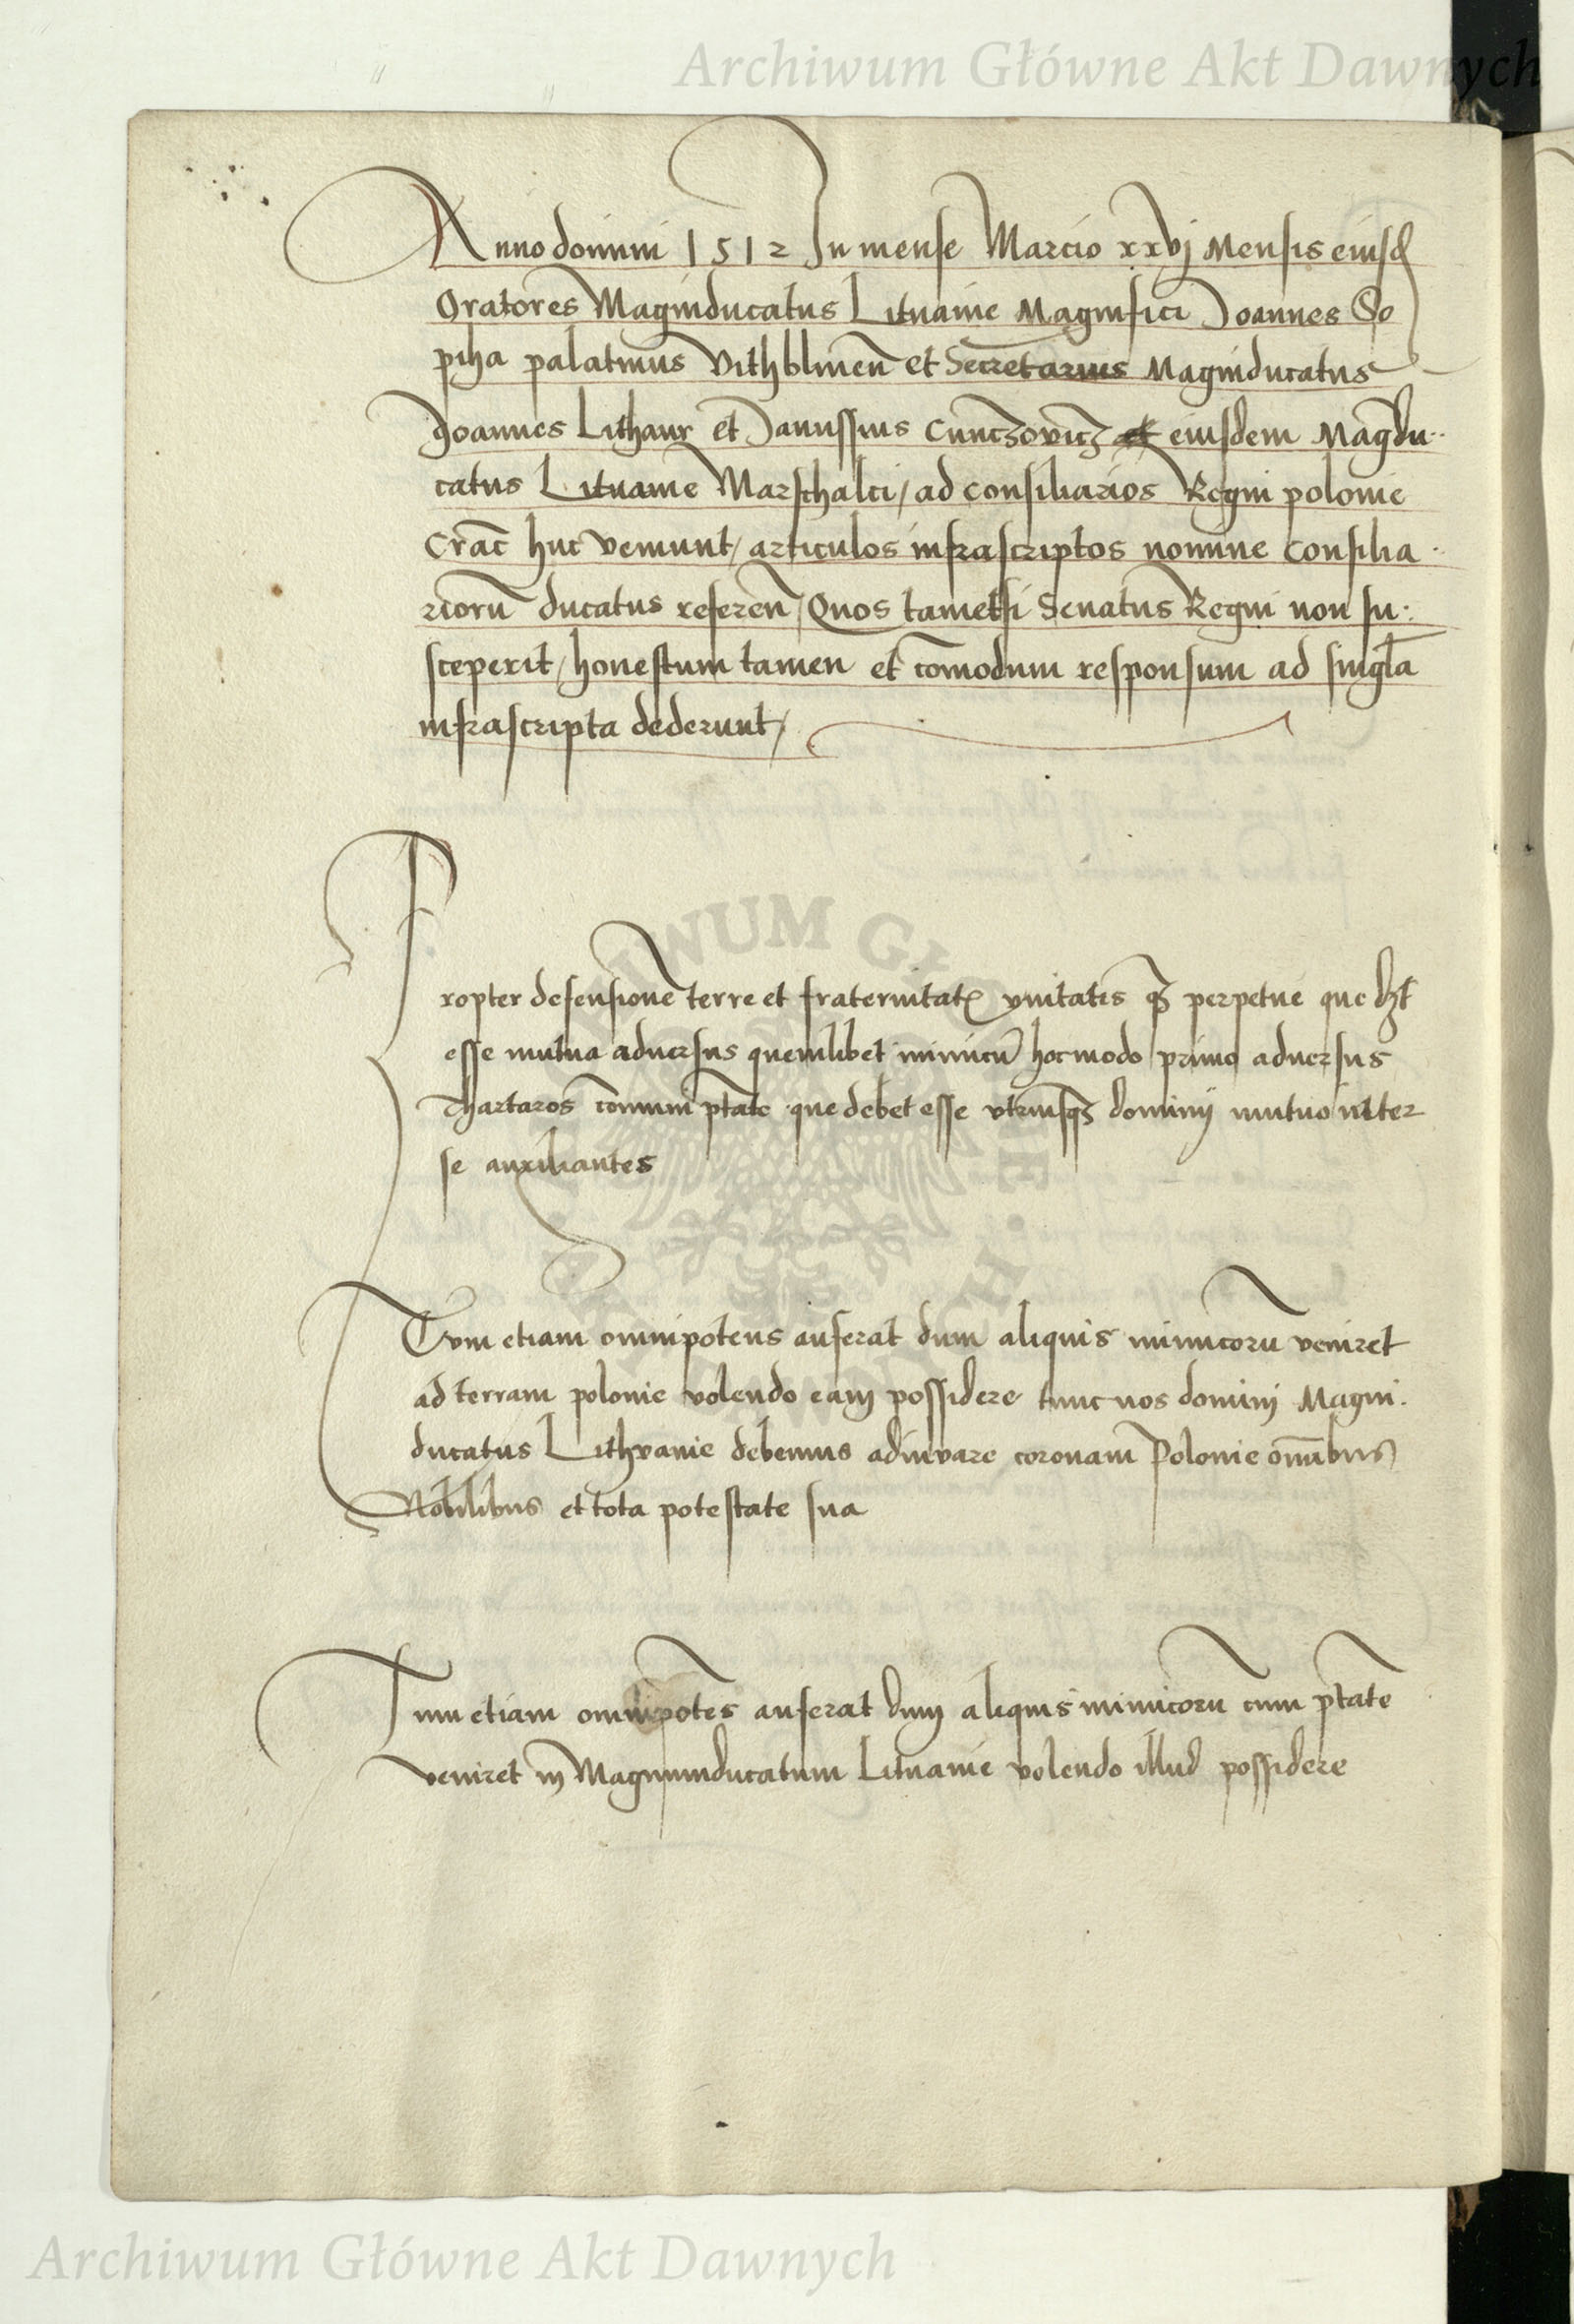 Archiwum Główne Akt Dawnych
Anno domini 1512 In mense Marcio xxvj Mensis eiusd
Oratores Magniducatus Lituanie Magnifici Joannes So
piha palatinus Vithblinen et Secretarius Magniducatus
Joannes Lithaur et Janussius et eiusdem Magdu··
catus Lituanie Marschalci / ad consiliarios Regni polonie
Crac huc venunt / articulos infrascriptos nomine consilia ·
riorū ducatus referen / Quos tametsi Senatus Regni non su:
sceperit / honestum tamen et comodum responsum ad singla
infrascripta dederunt /
Propter defensionē terre et fraternitatis vnitatis qȝ perpetue que dȝt
esse mutua aduersus quemlibet inimicū hoc modo primo aduersus
Thartaros cōmuni ptate que debet esse vtriusqȝ dominij mutuo inter
se auxiliantes
Tvm etiam omnipotens auferat dum aliquis inimicorū veniret
ad terram polonie volendo eam possidere tunc nos dominij Magni.
ducatus Lithvanie debemus adiuvare coronam Polonie omībus
Nobilibus et tota potestate sua
Tum etiam omnipotēs auferat dum aliquis inimicorū cum ptate
veniret in Magnumducatum Lituanie volendo illud possidere
Archiwum Główne Akt Dawnych